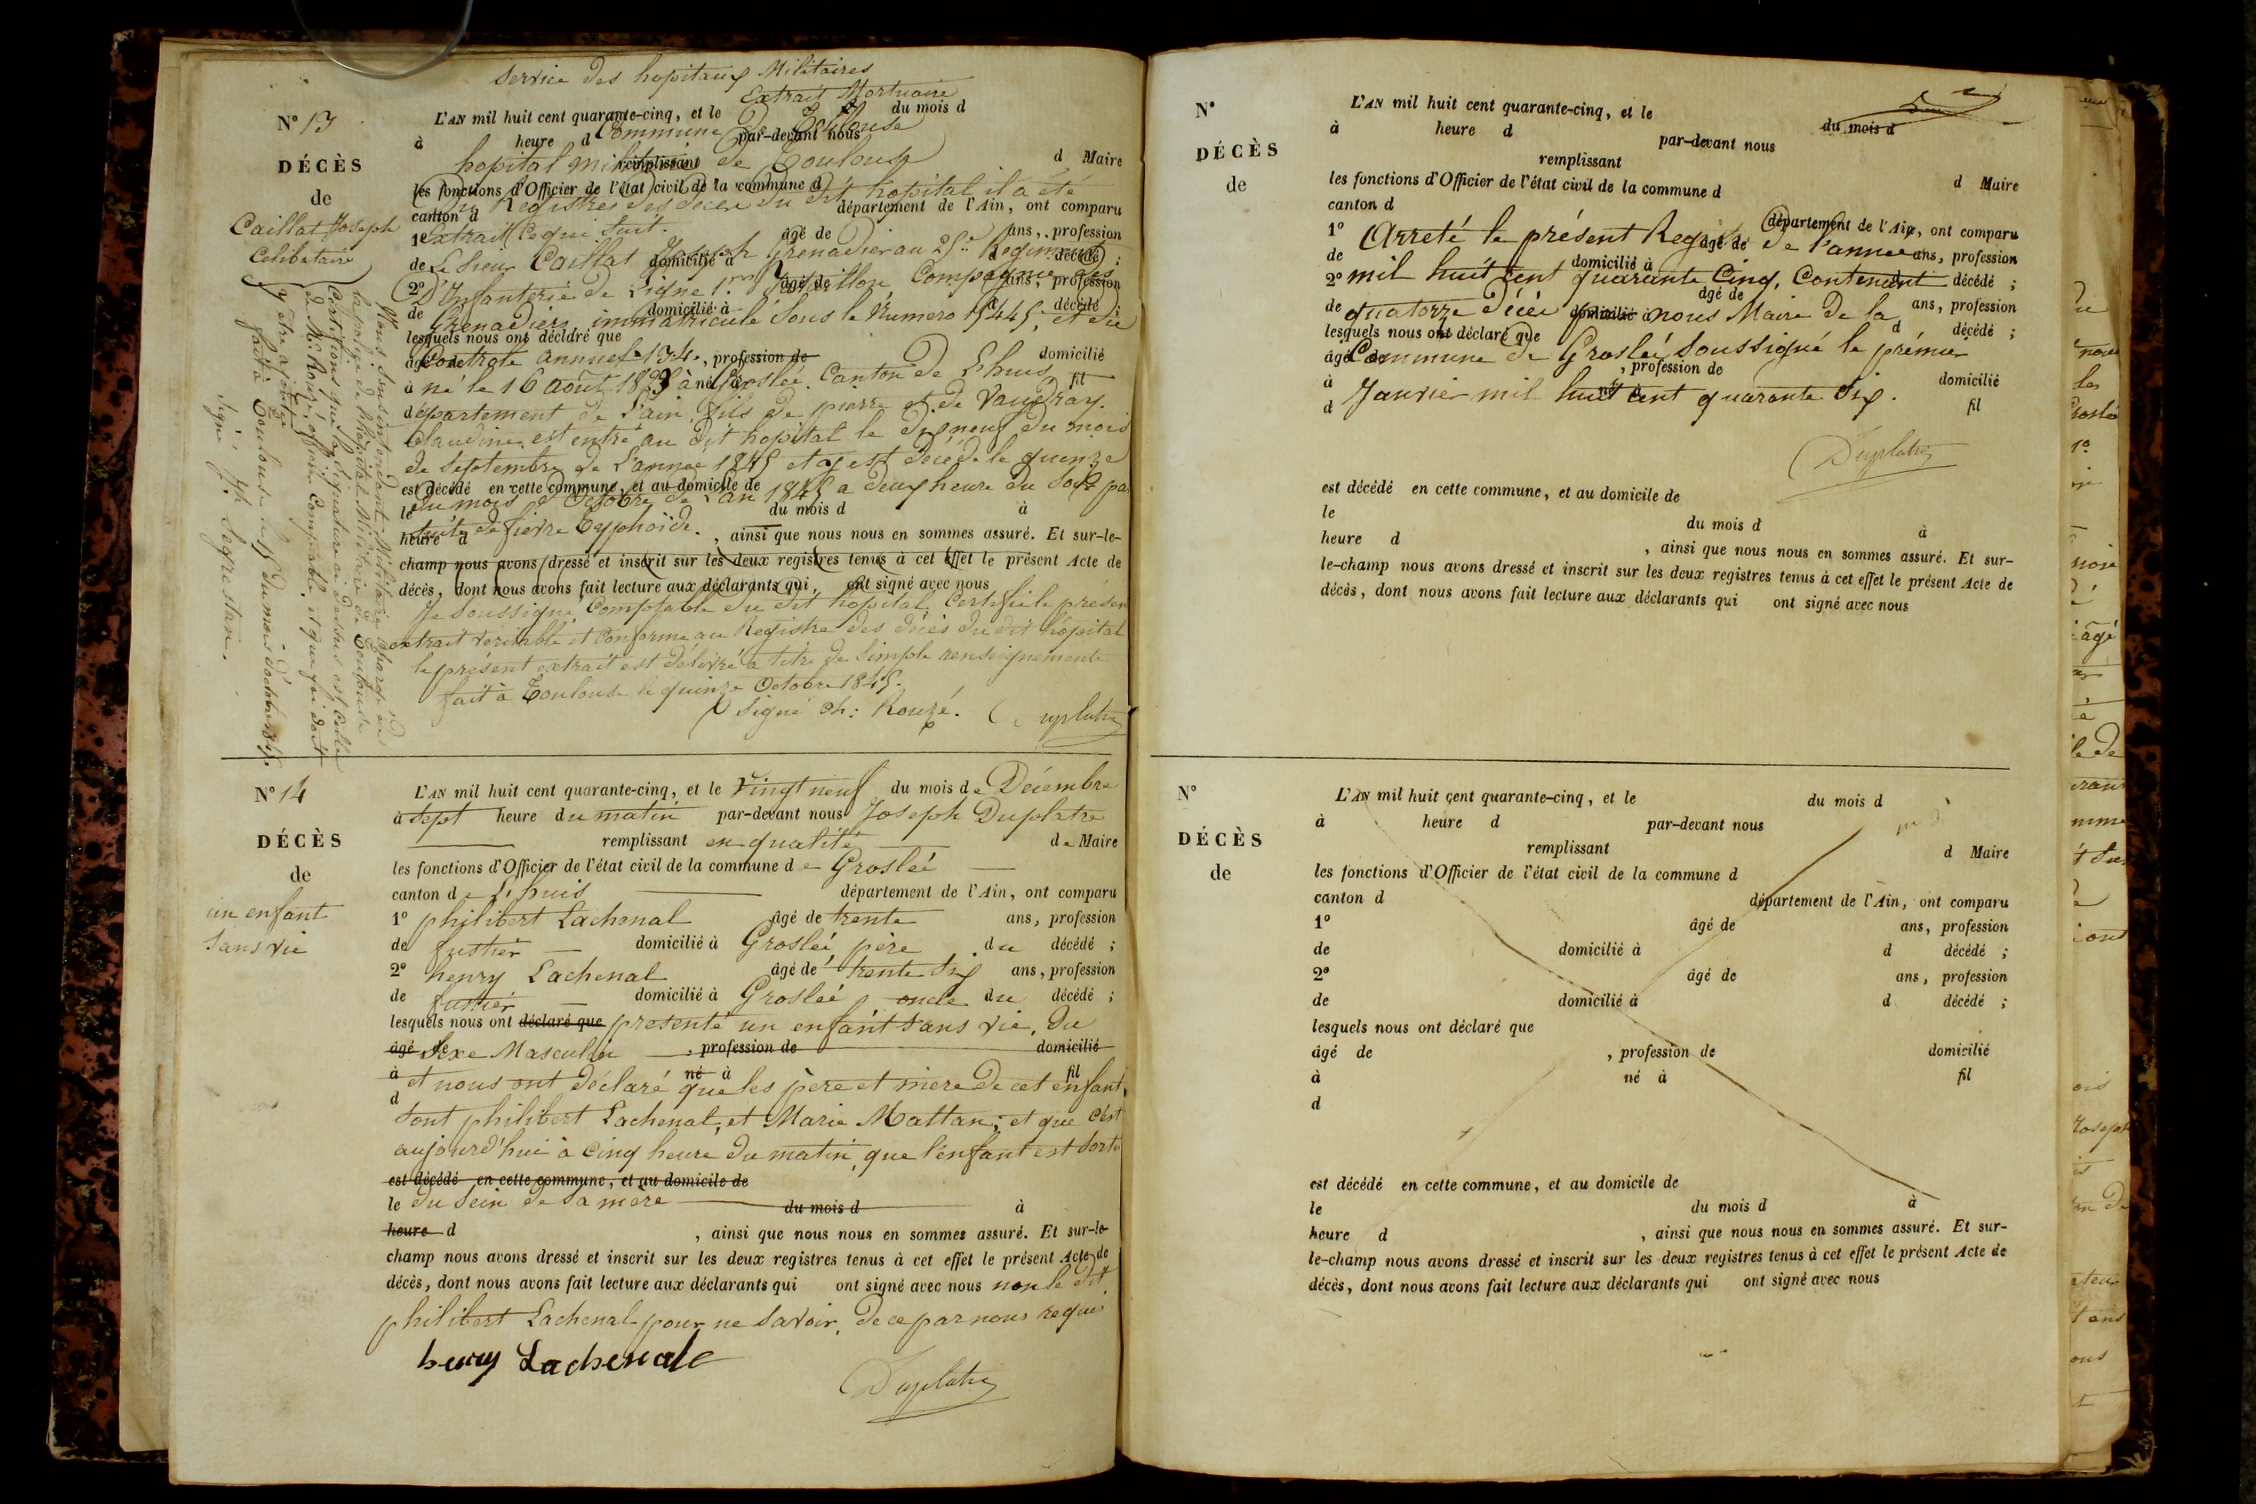 Service des hopitaux Militaires
Extrait Mortuaire
N° 13
L'AN mil huit cent quarante-cinq, et le du mois d
Commune de Toulouse
à heure d par-devant nous
hopital militaire de Toulouse
remplissant d Maire
DÉCÈS
de
Caillat Joseph
Celibataire
les fonctions d'Officier de l'état civil de la commune d
Du Registre des décès du dit hopital il a été
canton d département de l'Ain, ont comparu
extrait ce qui suit.
1° âgé de ans, profession
Le Sieur Caillat Joseph Grenadier au 25e Regiment
de domicilié à d décédé ;
D'Infanterie de Ligne 1er Bataillon Compagnie des
2° âgé de ans, profession
Grenadiers immatriculé sous le Numero 15445, et du
de domicilié à d décédé ;
lesquels nous ont déclaré que
Controle annuel 134.
âgé de , profession de domicilié
né le 16 août à Groslée Canton de Lhuis
à né à fil
département de l'ain fils de pierre et de Vaudray
d
Claudine est entré au dit hopital le dix neuf du mois
de Septembre de L'année 1845 et y est décédé le quinze
est décédé en cette commune, et au domicile de
du mois d'Octobre de L'an 1845 a deux heure du Soir par
le du mois d à
suite de fievre Typhoïde.
heure d , ainsi que nous nous en sommes assuré. Et sur-le-
champ nous avons dressé et inscrit sur les deux registres tenus à cet effet le présent Acte de
décès, dont nous avons fait lecture aux déclarants qui ont signé avec nous
Je soussigné Comptable du dit hopital Certifie le présent
extrait veritable et Conforme au Registre des décès du dit hôpital
le présent extrait est délivré à titre de simple renseignements
fait à Toulouse le quinze Octobre 1845.
Signé Ch: Rouzé. Duplatre
Nous Sousintendant Militaire chargé de
la police de l'hopital Militaire de Toulouse
Certifions que la signature ci dessus est celle
de Mr Rouzé, officier Comptable, et que foi doit
y être ajoutée
fait à Toulouse le 15 du mois d'octobre 1845.
Signé: Segrestan.
N° 14
L'AN mil huit cent quarante-cinq, et le Vingt neuf du mois de Décembre
à Sept heure du matin par-devant nous Joseph Duplatre
remplissant en qualité de Maire
DÉCÈS
de
un enfant
Sans vie
les fonctions d'Officier de l'état civil de la commune de Groslée
canton de L'huis département de l'Ain, ont comparu
1° philibert Lachenal âgé de trente ans, profession
de fustier domicilié à Groslée père du décédé ;
2° henry Lachenal âgé de trente Six ans, profession
de fustier domicilié à Groslée oncle du décédé ;
lesquels nous ont déclaré que presenté un enfant sans vie, du
âgé de Sexe Masculin , profession de domicilié
à né à fil
et nous ont déclaré que les père et mère de cet enfant
d
sont philibert Lachenal, et Marie Mattan; et que c'est
aujourd'hui à cinq heure du matin, que l'enfant est sorti
est décédé en cette commune, et au domicile de
le du sein de sa mère du mois d à
heure d , ainsi que nous nous en sommes assuré. Et sur-le-
champ nous avons dressé et inscrit sur les deux registres tenus à cet effet le présent Acte de
décès, dont nous avons fait lecture aux déclarants qui ont signé avec nous non le dit
philibert Lachenal pour ne savoir, de ce par nous requis
henry Lachenale
Duplatre
N°
L'AN mil huit cent quarante-cinq, et le du mois d
à heure d par-devant nous
remplissant d Maire
DÉCÈS
de
les fonctions d'Officier de l'état civil de la commune d
canton d département de l'Ain, ont comparu
1° âgé de ans, profession
Arreté le présent Registre de l'année
de domicilié à d décédé ;
mil huit cent quarante Cinq, Contenant
2° âgé de ans, profession
quatorze décès par nous Maire de la
de domicilié à d décédé ;
lesquels nous ont déclaré que
Commune de Groslée soussigné le prémier
âgé de , profession de domicilié
à né à fil
Janvier mil huit cent quarante Six.
d
Duplatre
est décédé en cette commune, et au domicile de
le du mois d à
heure d , ainsi que nous nous en sommes assuré. Et sur-
le-champ nous avons dressé et inscrit sur les deux registres tenus à cet effet le présent Acte de
décès, dont nous avons fait lecture aux déclarants qui ont signé avec nous
N°
L'AN mil huit cent quarante-cinq, et le du mois d
à heure d par-devant nous
remplissant d Maire
DÉCÈS
de
les fonctions d'Officier de l'état civil de la commune d
canton d département de l'Ain, ont comparu
1° âgé de ans, profession
de domicilié à d décédé ;
2° âgé de ans, profession
de domicilié à d décédé ;
lesquels nous ont déclaré que
âgé de , profession de domicilié
à né à fil
d
est décédé en cette commune, et au domicile de
le du mois d à
heure d , ainsi que nous nous en sommes assuré. Et sur-
le-champ nous avons dressé et inscrit sur les deux registres tenus à cet effet le présent Acte de
décès, dont nous avons fait lecture aux déclarants qui ont signé avec nous